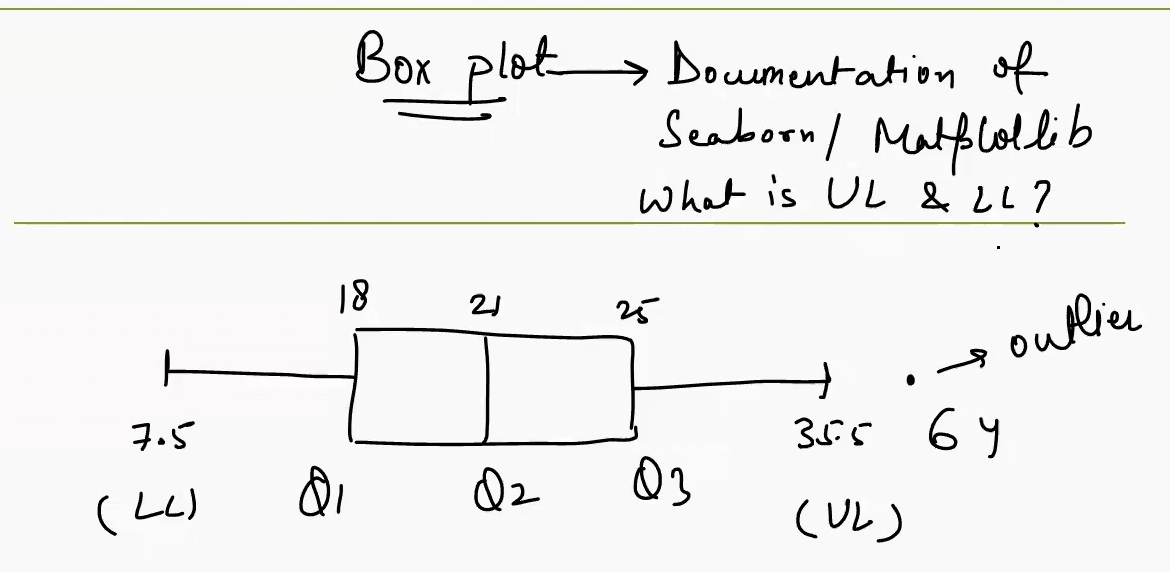 Box plot → Documentation of
Seaborn / Matplotlib
What is UL & LL?
18 21 25
→ outlier
7.5 35.5 64
(LL) Q1 Q2 Q3 (UL)